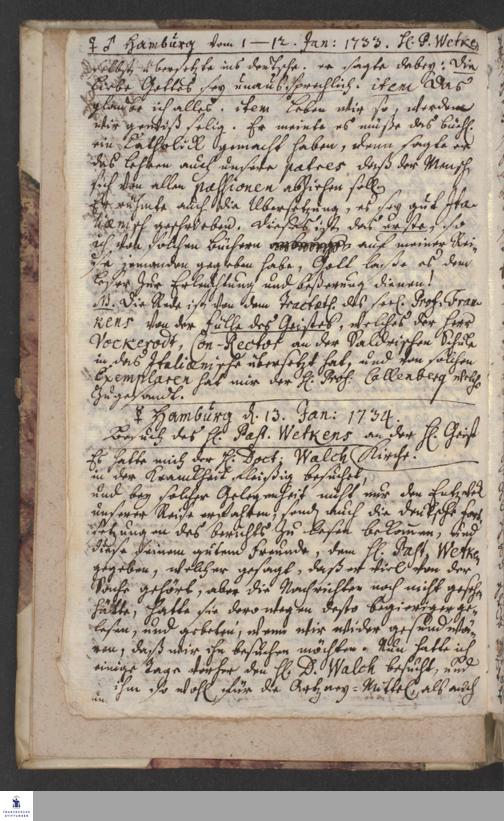 ☿ ♂ Hamburg vom 1 — 12. Jan: 1733. H. P. Wetken
selbst übersetzte ins deutsche. er sagte dabey: Die
Liebe Gottes sey unaussprechlich. item Das
glaube ich alles. item leben wir so, werden
wir gewiß selig. Er meinte es müße das büchl.
ein Catholick gemacht haben, denn sagte er
das lehren auch unsere patres, daß der Mensch
sich von allen passionen abziehen soll.
Er rühmte auch die Übersetzung, es sey gut Ita-
liänisch geschrieben. Dieses ist das erste, so
ich von solchen büchern auf meiner Rei-
se jemanden gegeben habe, Gott lasse es dem
leser zur Erleuchtung und beßerung dienen!
NB. Die Rede ist von dem Tractätl. des sel. Prof. Fran-
kens von der Fülle des Geistes, welches der Herr
Vockerodt, Con-Rector an der Schule
in das Italiänische übersetzt hat, und von solchen
Exemplaren hat mir der H. Prof. Callenberg welche
zugesandt.
☿ Hamburg d. 13. Jan: 1734.
Besuch des H. Past. Wetkens an der H. Geist
Kirche.
Es hatte mich der H. Doct: Walch
in der Kranckheit fleißig besuchet,
und bey solcher Gelegenheit nicht nur den Entzweck
unserer Reise erfahren, sond. auch die deutsche fort
setzungen des berichts zu lesen bekommen, und
diese seinem guten Freunde, dem H. Past, Wetken
gegeben, welcher gesagt, daß er viel von der
Sache gehört, aber die Nachrichten noch nicht gesehen
hätte, hatte sie derowegen desto begieriger ge-
lesen, und gebeten, wenn wir wider gesund wä-
ren, daß wir ihn besuchen möchten. Nun hatte ich
einige tage vorher den H. D. Walch besucht, und
ihm so wohl für die Artzney-Mittel, als auch
FRANCKESCHE
STIFTUNGEN